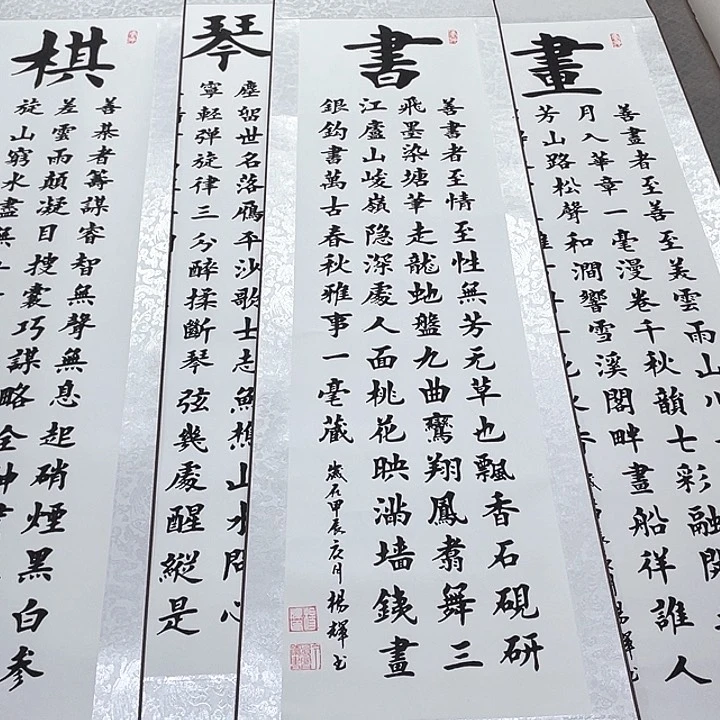 畫
善畫者至善至美雲雨山
月入華章一毫漫卷千秋韻七彩融
芳山路松聲和澗響雪溪閣畔畫船祥誰人
書
善書者至情至性無芳无草也飄香石硯研
飛墨染塘筆走龍虵盤九曲鸞翔鳳翥舞三
江廬山峻嶺隐深處人面桃花映滿墙鐵畫
銀鈎書萬古春秋雅事一毫藏
歲在甲辰亥月楊輝书
琴
塵世名落鴈平沙歌士志魚樵山水問心
寧輕弹旋律三分醉揉斷琴弦幾處醒縱是
棋
善棊者籌謀睿智無聲無息起硝煙黑白参
差雲雨顛凝目搜囊巧謀略全神
旋山窮水盡無